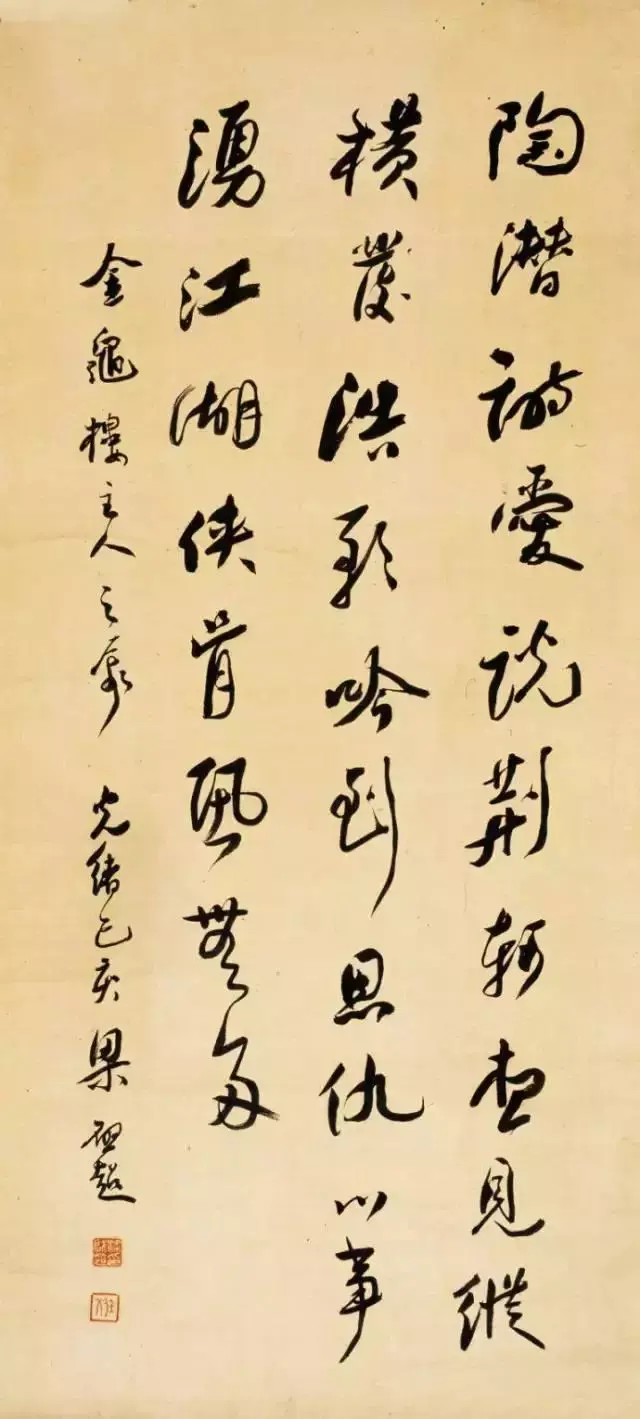 陶潛詩愛說荊軻想見縱
橫發浩歌吟到恩仇心事
湧江湖侠骨恐無多
金龜樓主人之 光緒己亥梁啟超